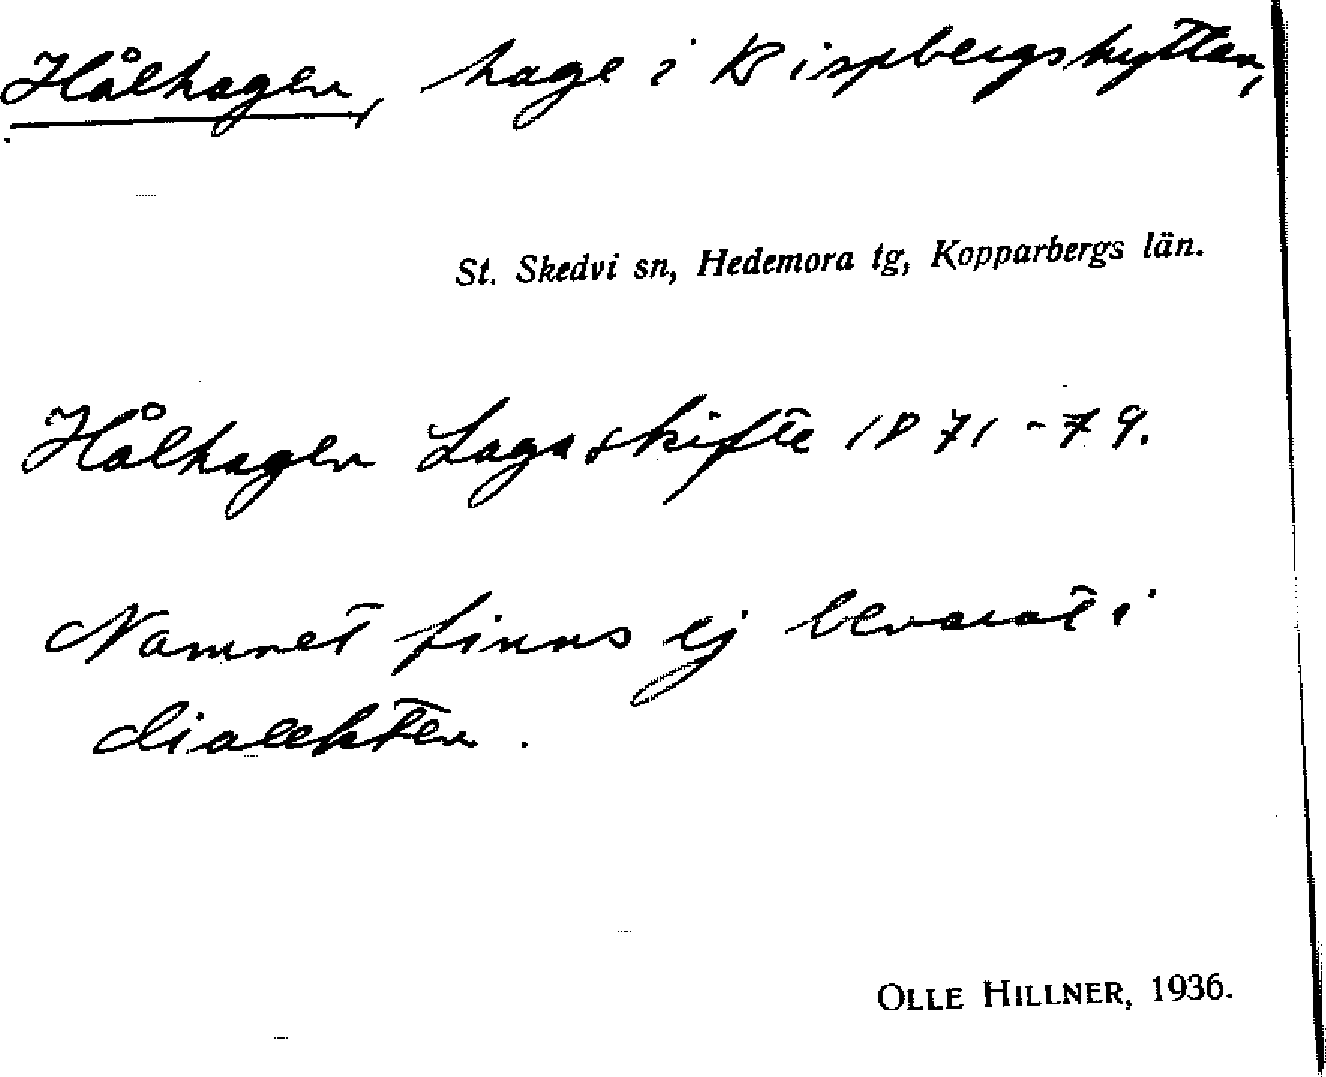 Hålhagen, hage i Bispbergshyttan,
St. Skedvi sn, Hedemora tg, Kopparbergs län.
Hålhagen Laga skifte 1871-79.
Namnet finns ej bevarat i
dialekten.
OLLE HILLNER, 1936.